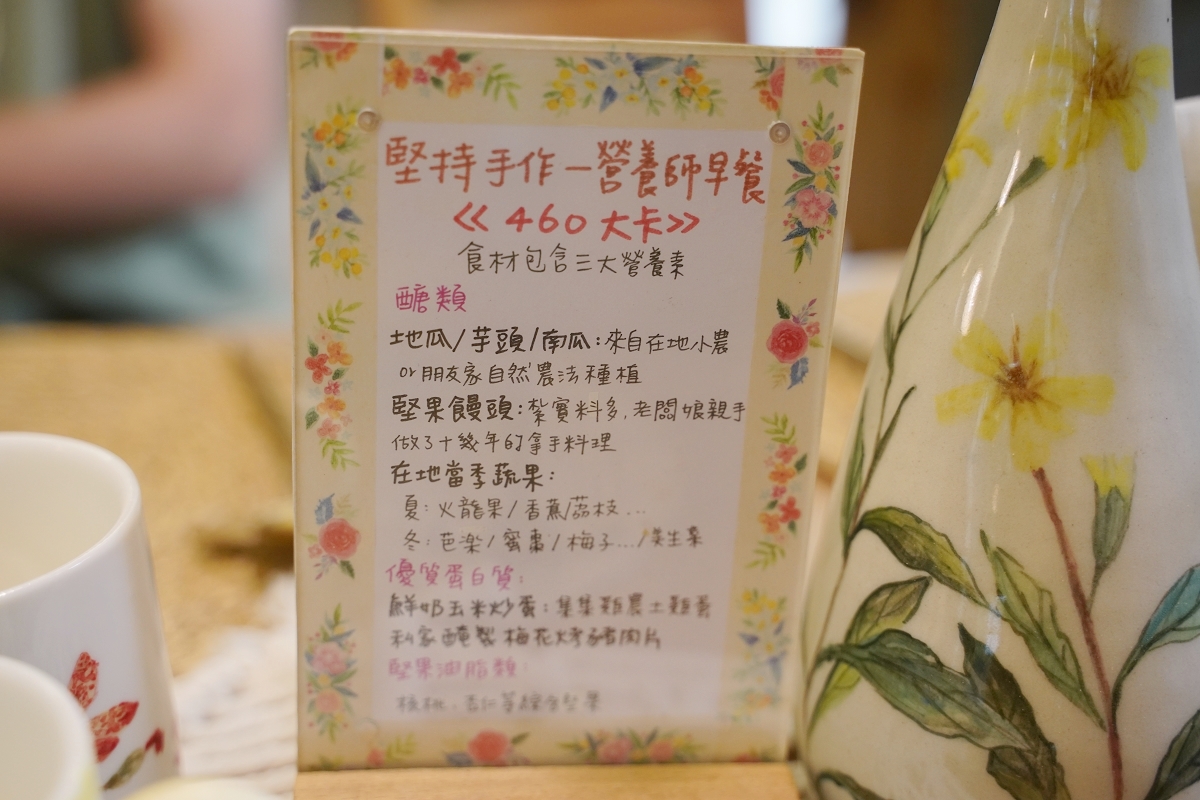 堅持手作—營養師早餐
<<460大卡>>
食材包含三大營養素
醣類
地瓜/芋頭/南瓜:來自在地小農
or朋友家自然農法種植
堅果饅頭:紮實料多,老闆娘親手
做了十幾年的拿手料理
在地當季蔬果:
夏:火龍果/香蕉/荔枝...
冬:芭樂/蜜棗/梅子.../美生菜
優質蛋白質:
鮮奶玉米炒蛋:集集雞農土雞蛋
私家醃製梅花烤豬肉片
堅果油脂類:
核桃、杏仁等綜合堅果